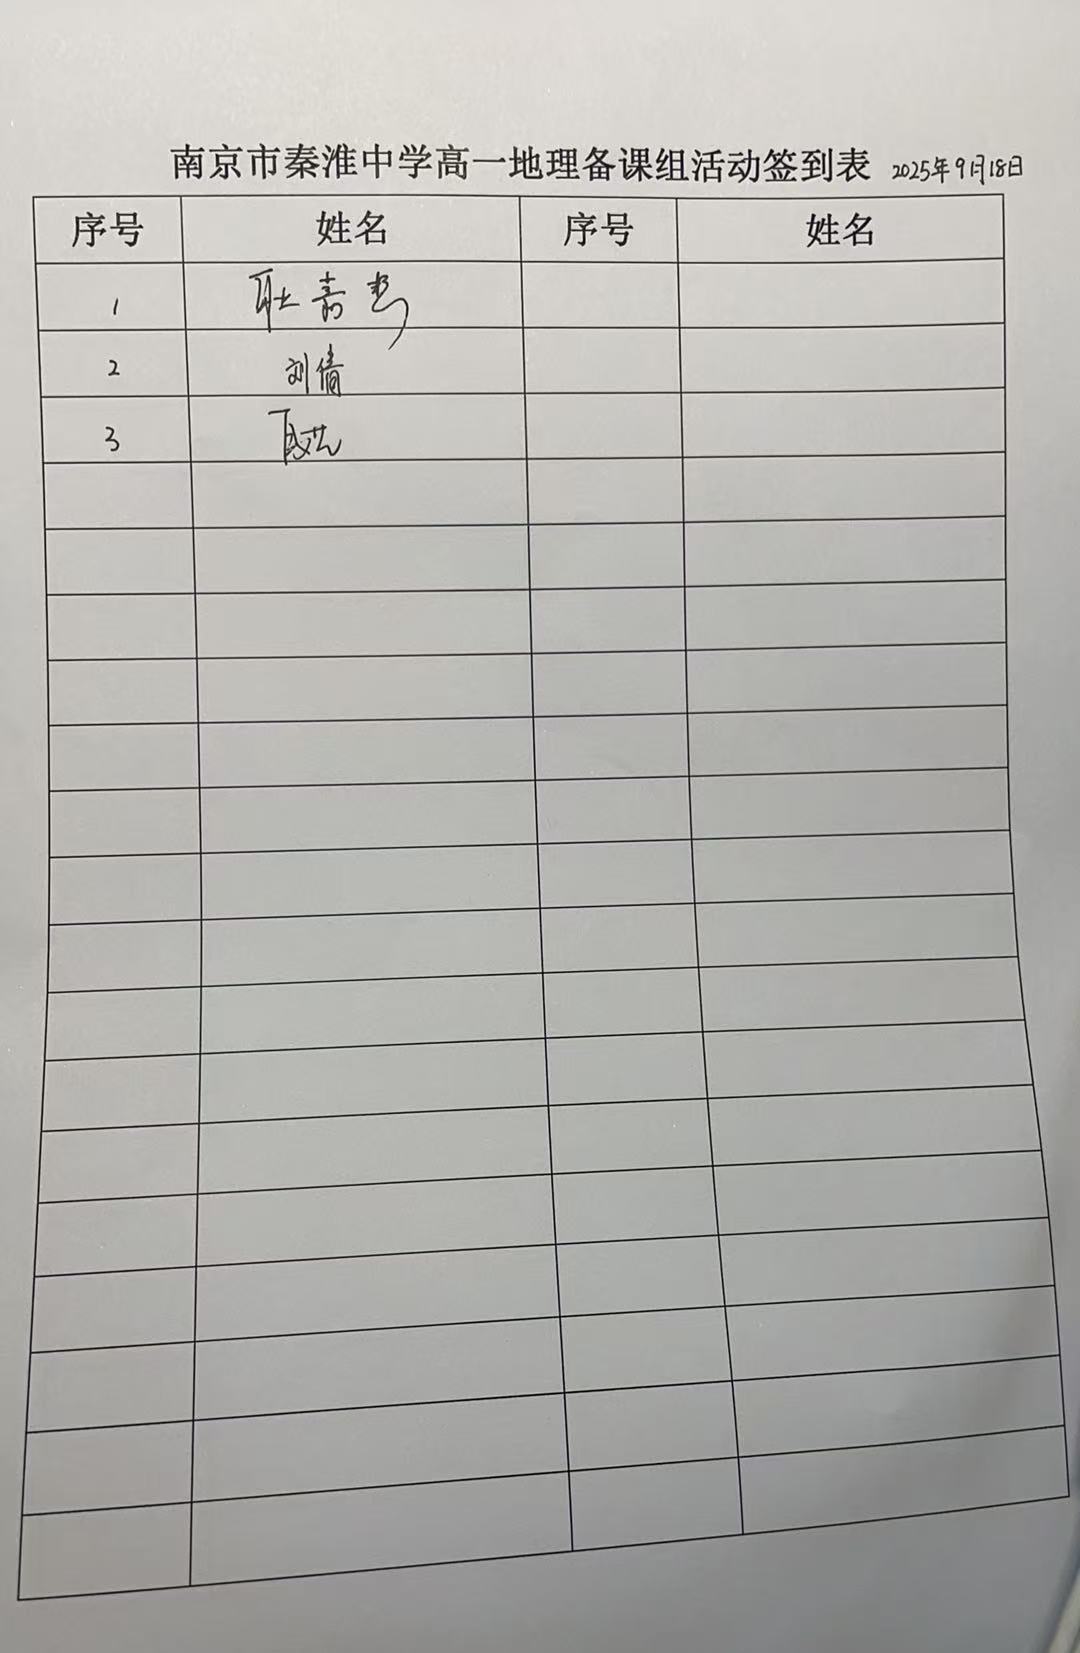 南京市秦淮中学高一地理备课组活动签到表 2025年9月18日
序号 姓名 序号 姓名
1 耿嘉
2 刘倩
3